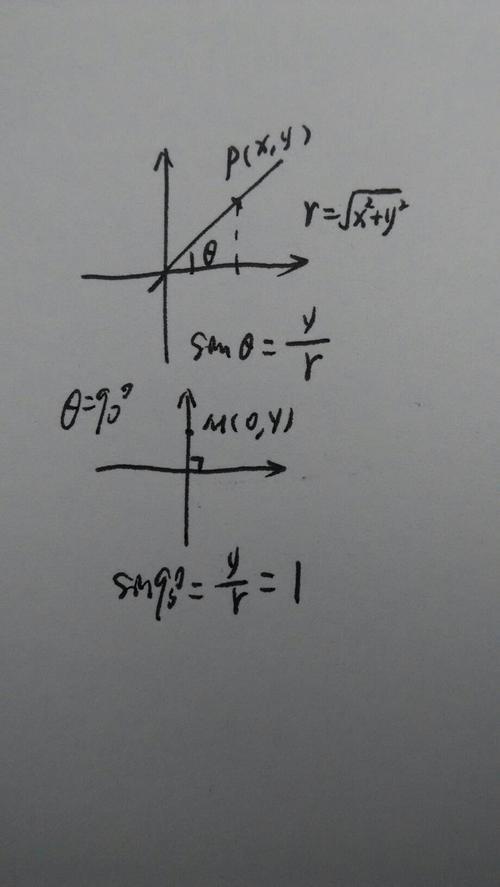 P(x,y)
r=√x²+y²
θ
sinθ = y/r
θ=90°
M(0,y)
sin90° = y/r = 1